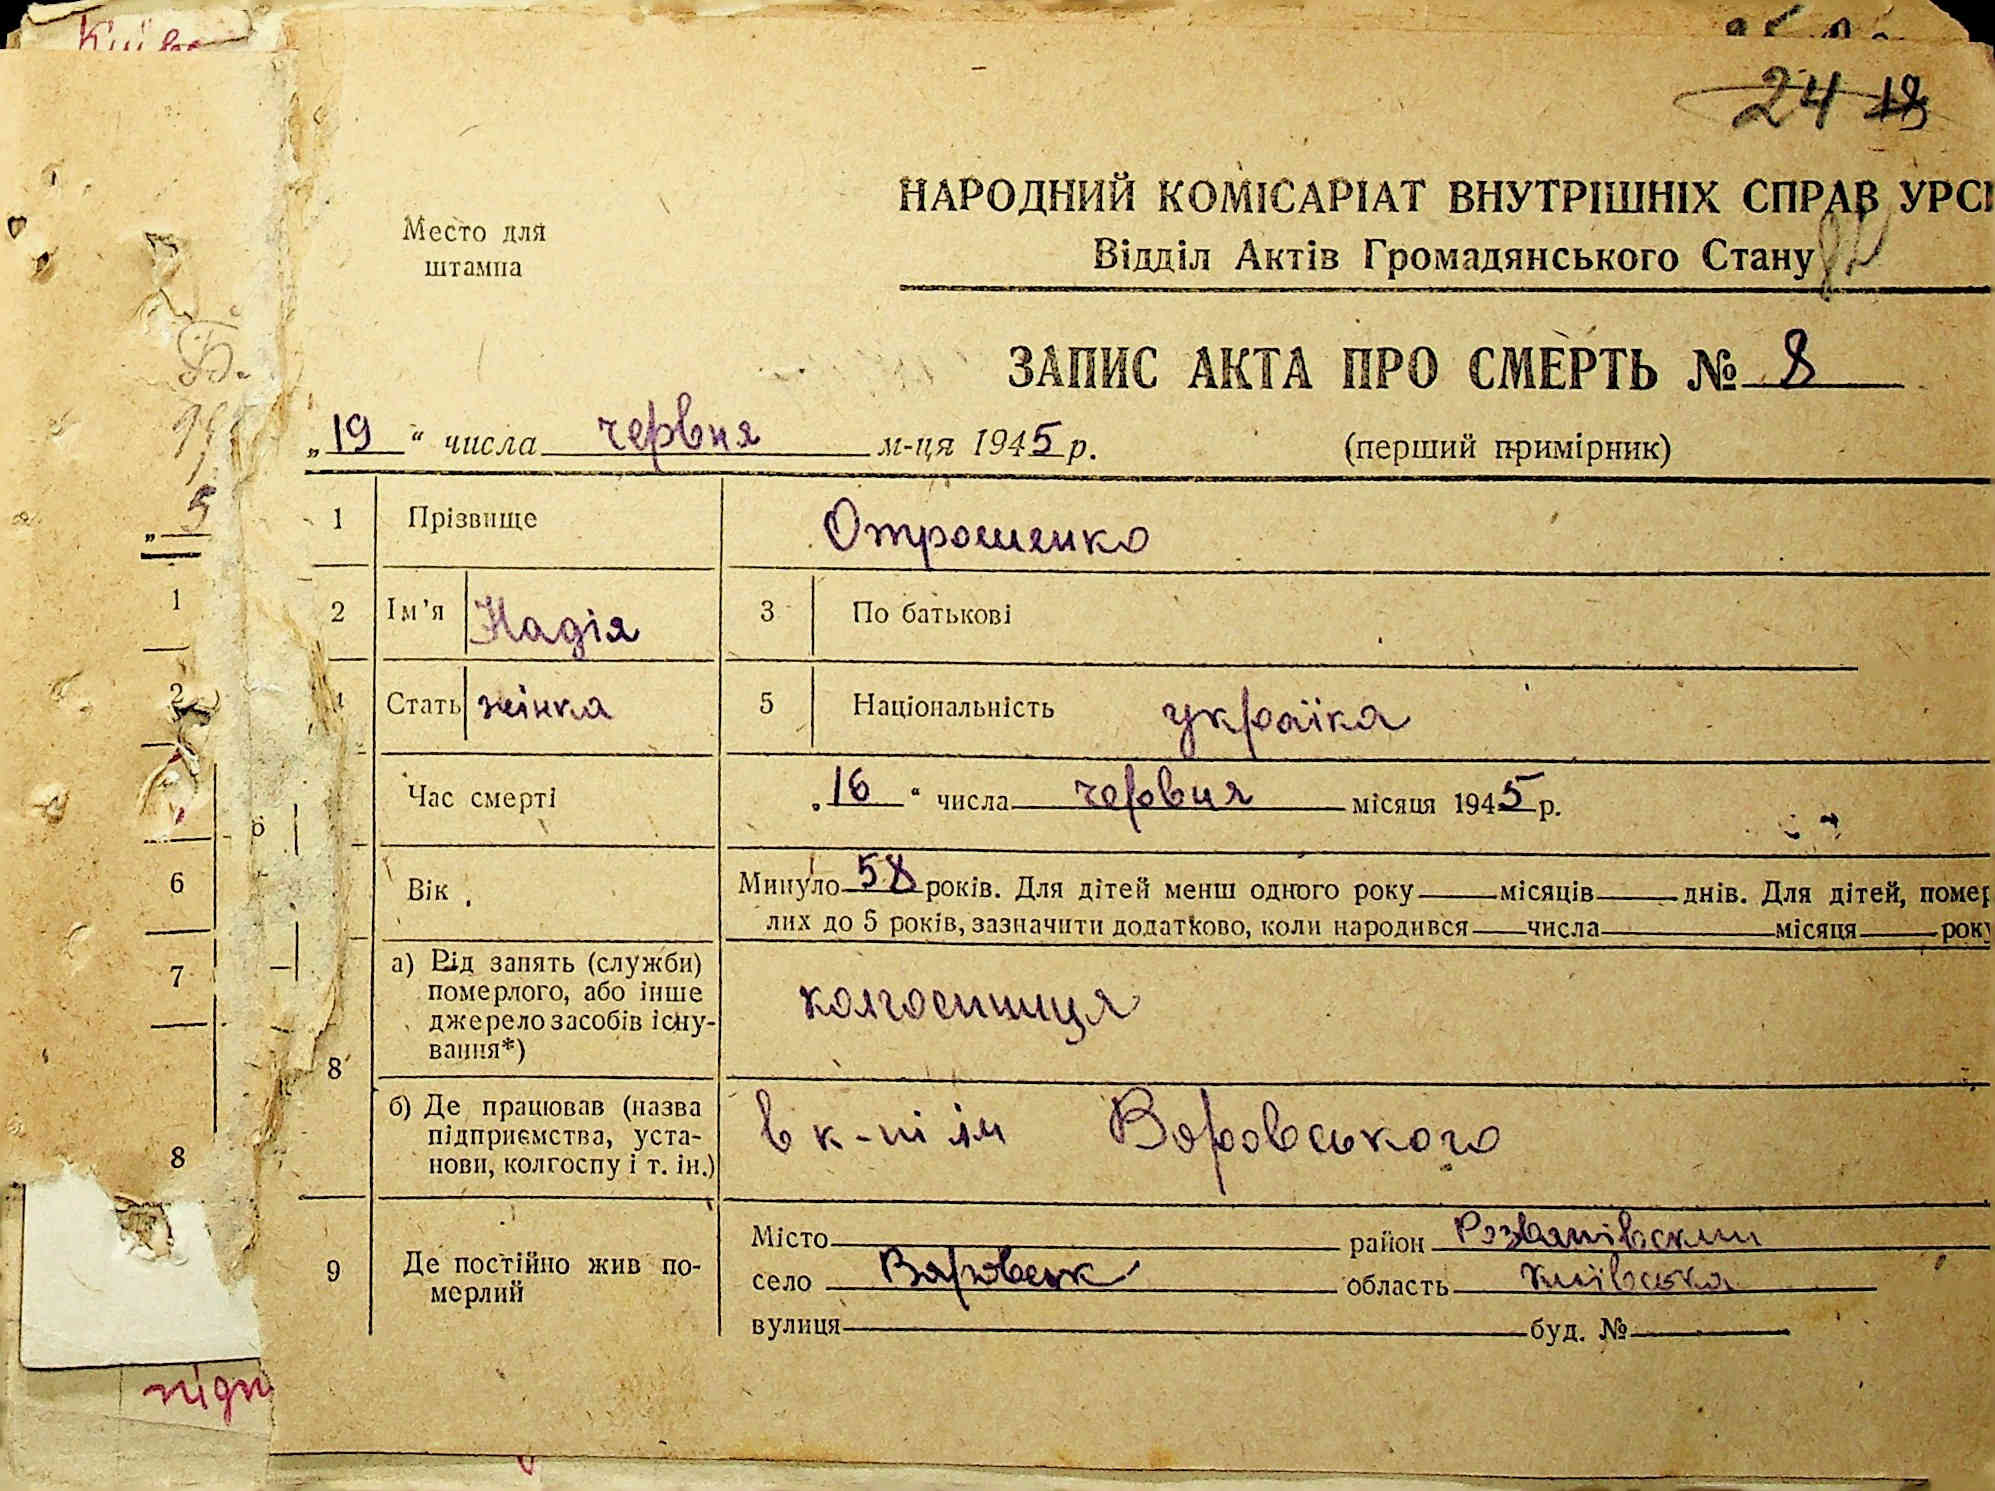 24 18
Место для
штампа
НАРОДНИЙ КОМІСАРІАТ ВНУТРІШНІХ СПРАВ УРСР
Відділ Актів Громадянського Стану
ЗАПИС АКТА ПРО СМЕРТЬ № 8
„19“ числа червня м-ця 1945 р. (перший примірник)
1 Прізвище Отрошенко
2 Ім'я Надія 3 По батькові
4 Стать жінка 5 Національність україка
Час смерті „16“ числа червня місяця 1945 р.
Вік Минуло 58 років. Для дітей менш одного року місяців днів. Для дітей, помер
лих до 5 років, зазначити додатково, коли народився числа місяця року
8 а) Рід занять (служби)
померлого, або інше
джерело засобів існу-
вання*) колгоспниця
б) Де працював (назва
підприємства, уста-
нови, колгоспу і т. ін.) в к-пі ім Воровського
9 Де постійно жив по-
мерлий
Місто район Розважівський
село Воровськ область київська
вулиця буд. №
5
1
2
6
7
8
підп